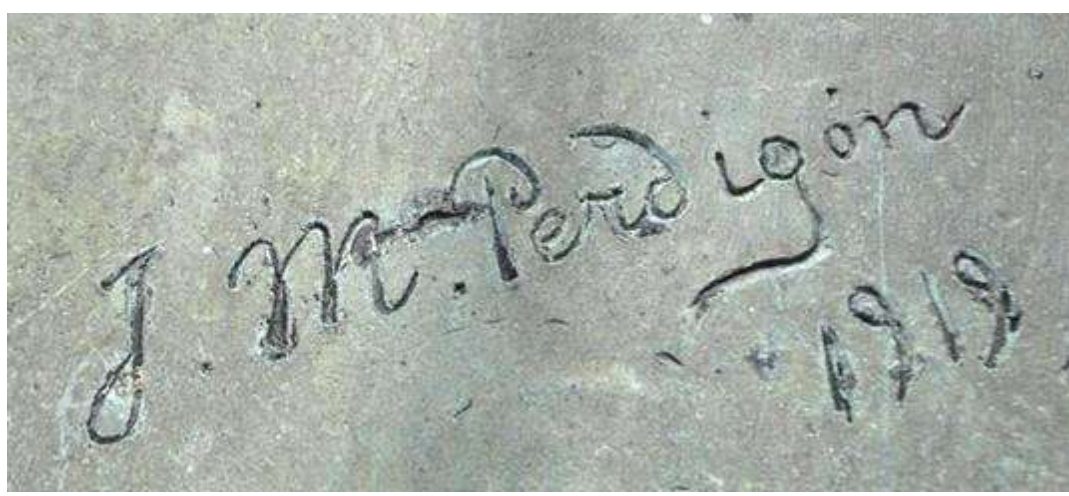 J. M. Perdigon
1919